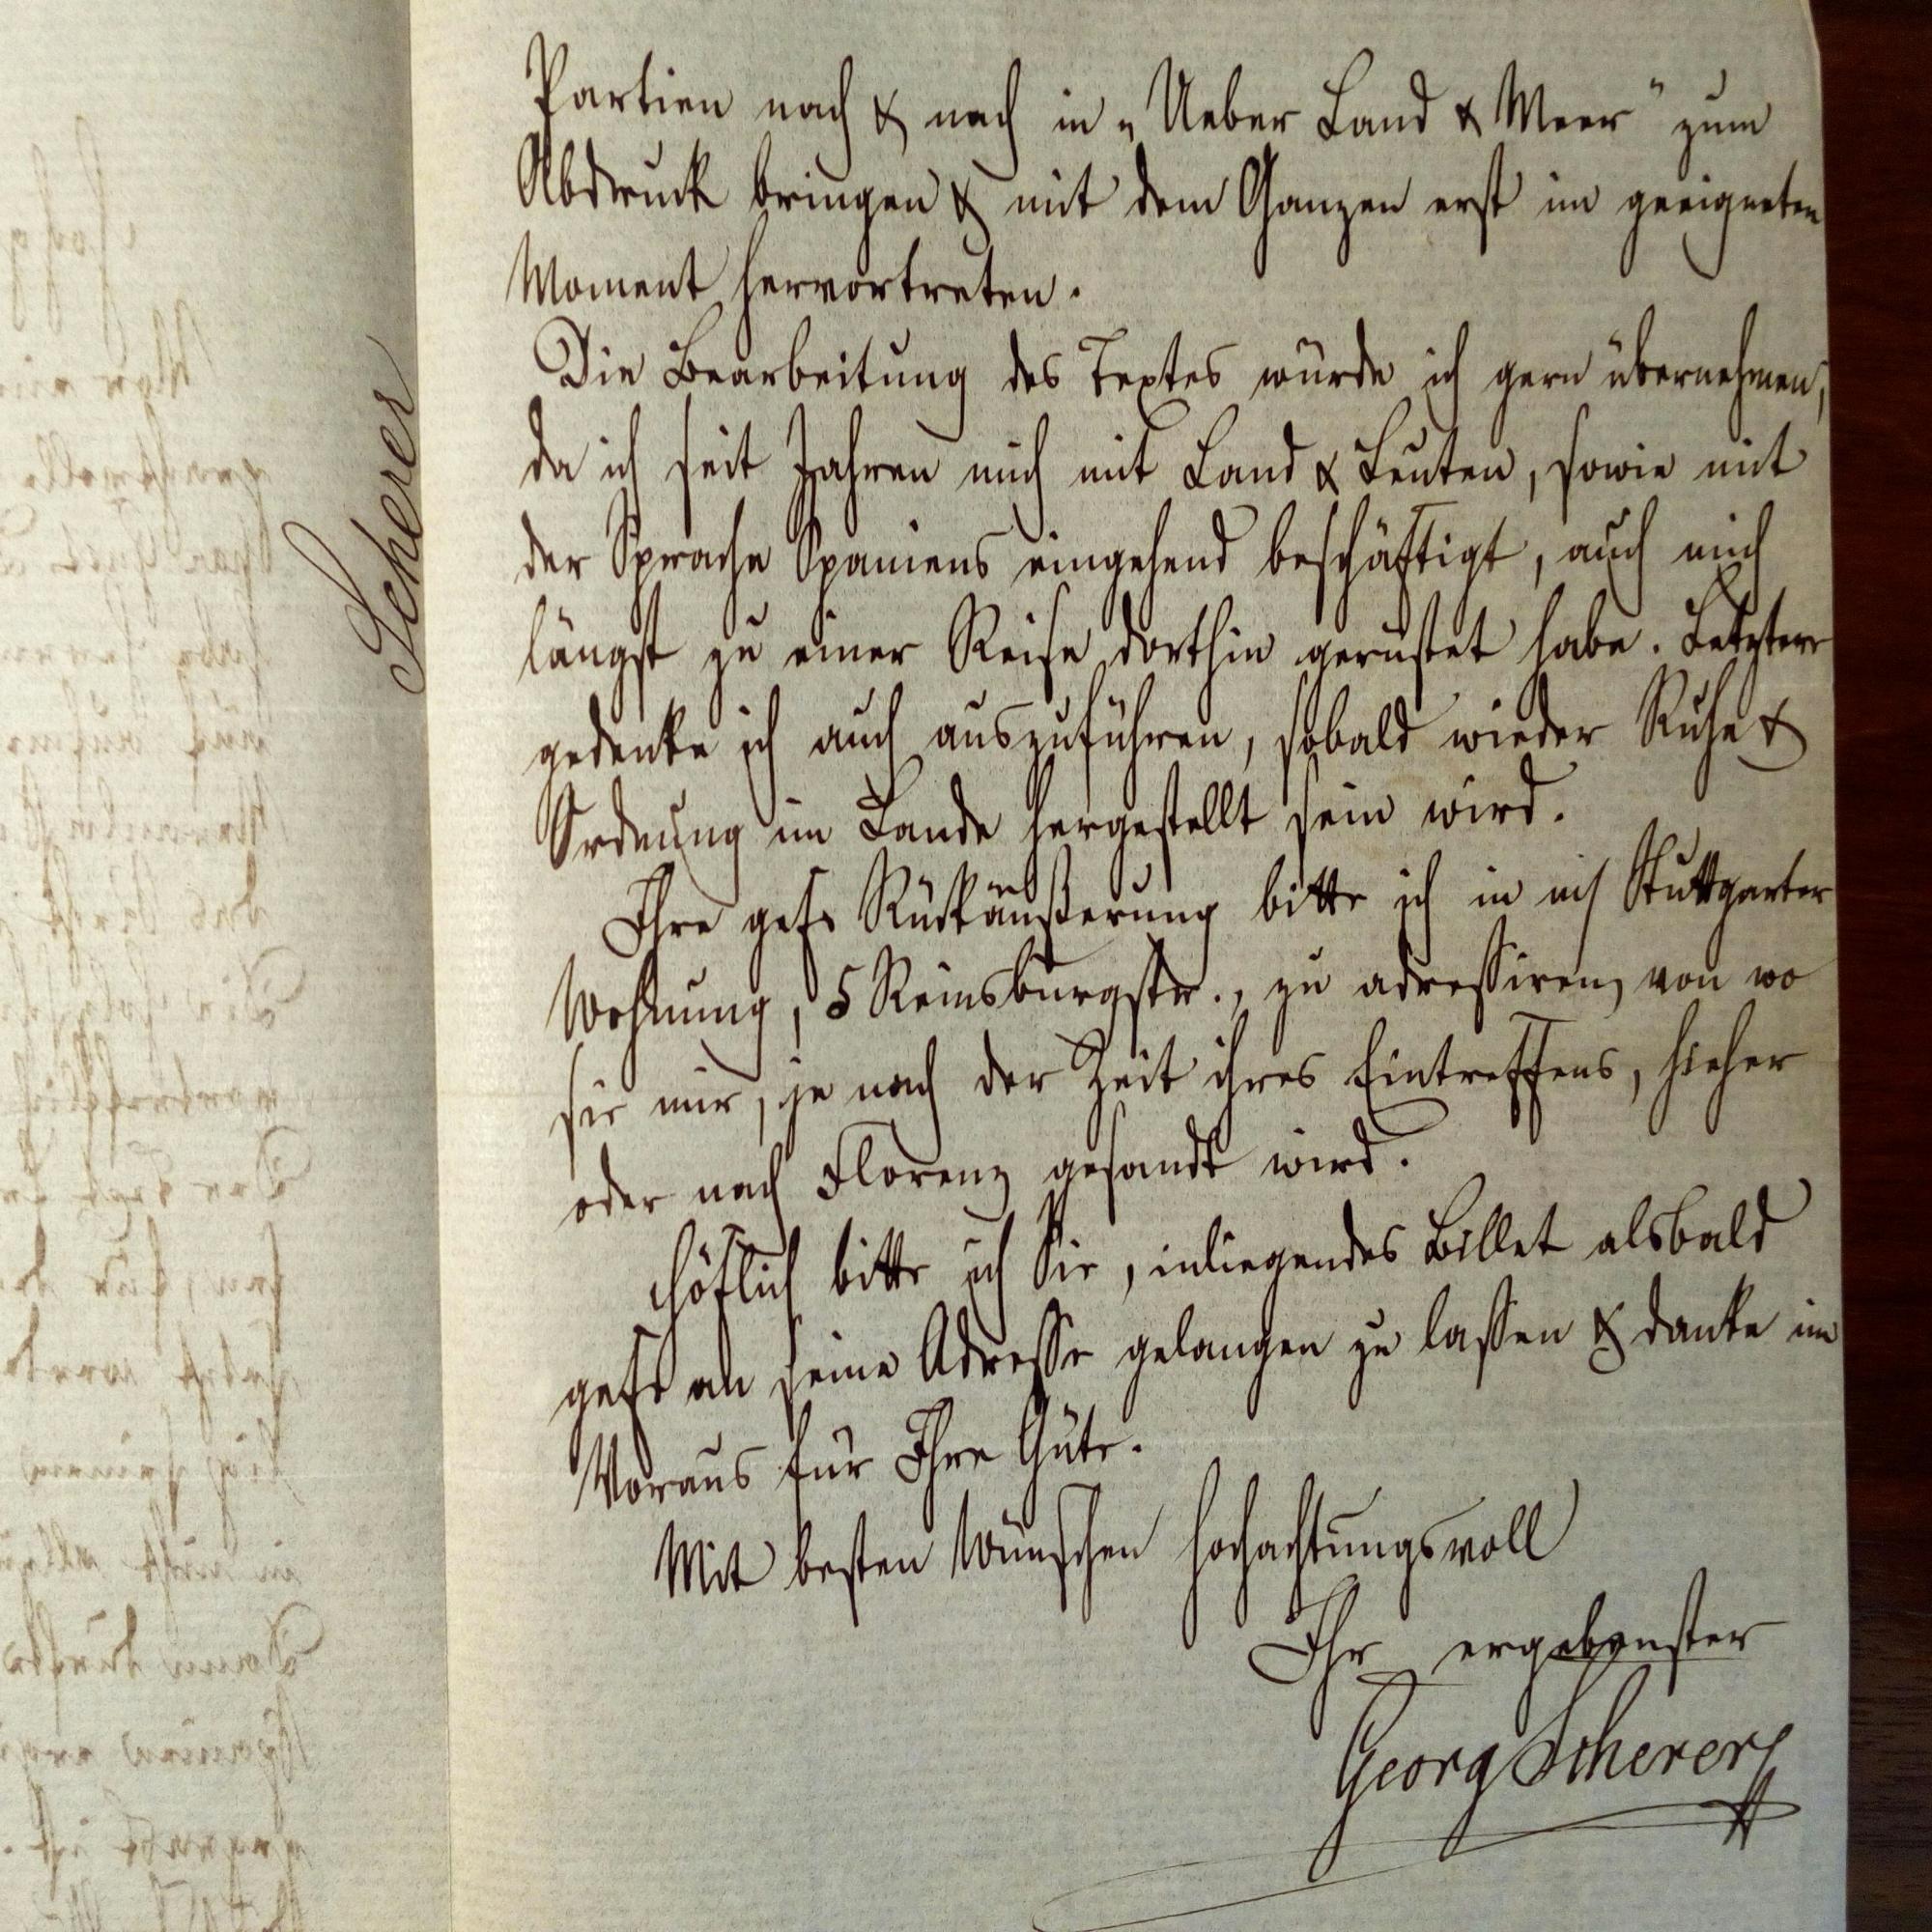 Scherer
Partien nach & nach in „Ueber Land & Meer" zum
Abdruck bringen & mit dem Ganzen erst im geeigneten
Moment hervortreten.
Die Bearbeitung des Textes würde ich gern übernehmen,
da ich seit Jahren mich mit Land & Leuten, sowie mit
der Sprache Spaniens eingehend beschäftigt, auch mich
längst zu einer Reise dorthin gerüstet habe. Letztere
gedenke ich auch auszuführen, sobald wieder Ruhe &
Ordnung im Lande hergestellt sein wird.
Ihre gef. Rückäußerung bitte ich in m/ Stuttgarter
Wohnung, 5 Reinsburgstr., zu adressiren, von wo
sie mir, je nach der Zeit ihres Eintreffens, hieher
oder nach Florenz gesandt wird.
Höflich bitte ich Sie, inliegendes Billet alsbald
gefl an seine Adresse gelangen zu lassen & danke im
Voraus für Ihre Güte.
Mit besten Wünschen hochachtungsvoll
Ihr ergebenster
Georg Scherer